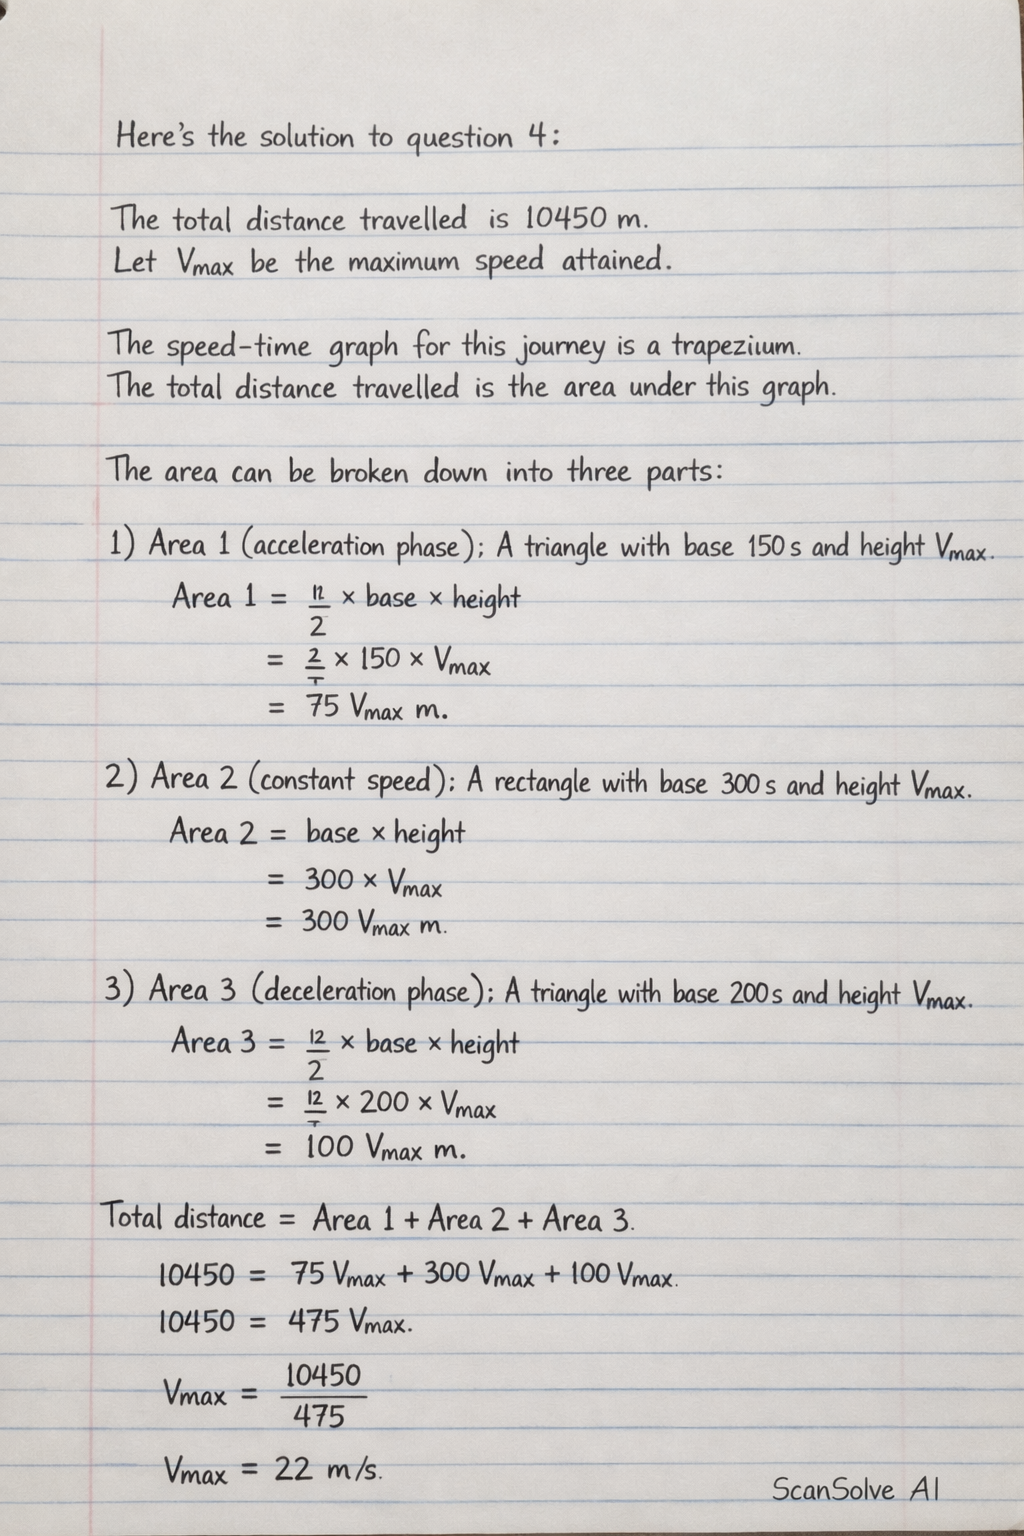 Here's the solution to question 4:
The total distance travelled is 10450 m.
Let Vmax be the maximum speed attained.
The speed-time graph for this journey is a trapeziium.
The total distance travelled is the area under this graph.
The area can be broken down into three parts:
1) Area 1 (acceleration phase); A triangle with base 150 s and height Vmax.
Area 1 = 12/2 × base × height
= 2/T × 150 × Vmax
= 75 Vmax m.
2) Area 2 (constant speed); A rectangle with base 300 s and height Vmax.
Area 2 = base × height
= 300 × Vmax
= 300 Vmax m.
3) Area 3 (deceleration phase); A triangle with base 200 s and height Vmax.
Area 3 = 12/2 × base × height
= 12/T × 200 × Vmax
= 100 Vmax m.
Total distance = Area 1 + Area 2 + Area 3.
10450 = 75 Vmax + 300 Vmax + 100 Vmax.
10450 = 475 Vmax.
Vmax = 10450/475
Vmax = 22 m/s.
ScanSolve AI